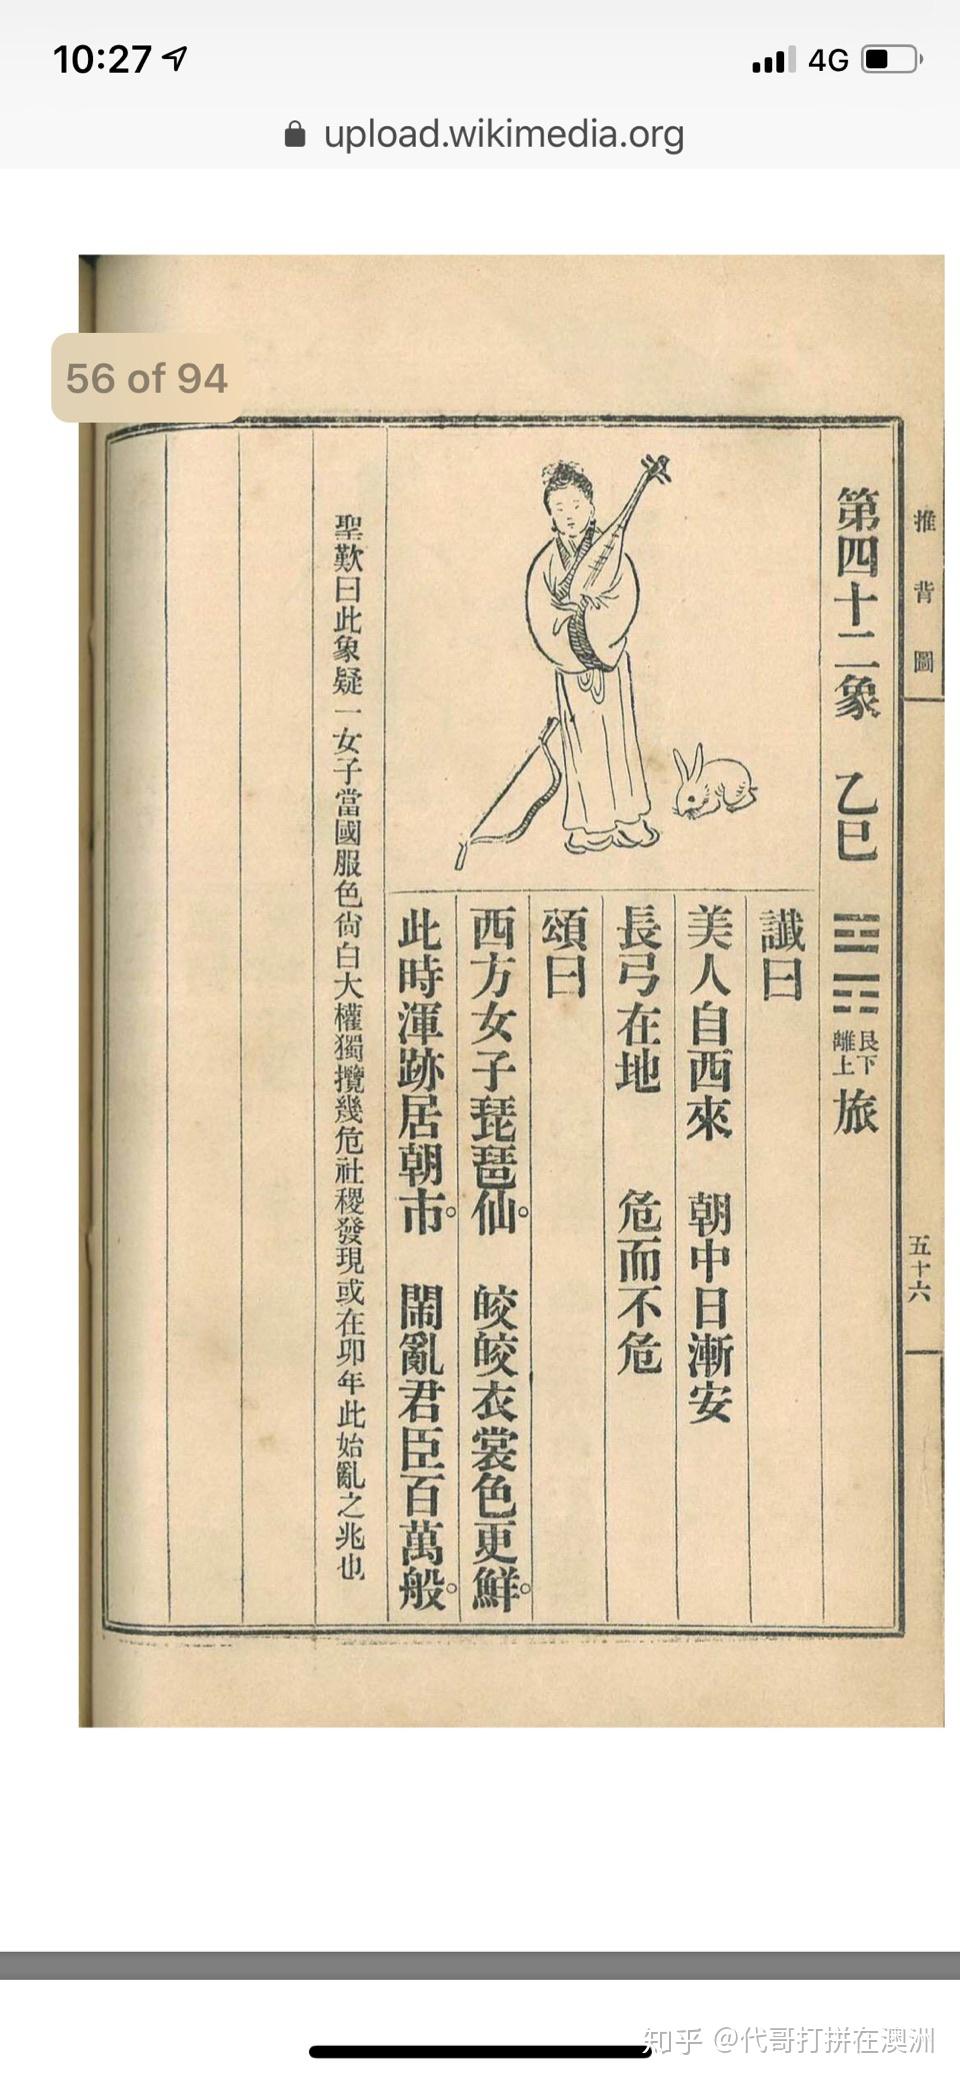 10:27
4G
upload.wikimedia.org
56 of 94
推背圖
五十六
第四十二象 乙巳 艮下離上 旅
讖曰
美人自西來 朝中日漸安
長弓在地 危而不危
頌曰
西方女子琵琶仙。 皎皎衣裳色更鮮。
此時渾跡居朝市。 鬧亂君臣百萬般。
聖歎曰此象疑一女子當國服色尙白大權獨攬幾危社稷發現或在卯年此始亂之兆也
知乎 @代哥打拼在澳洲